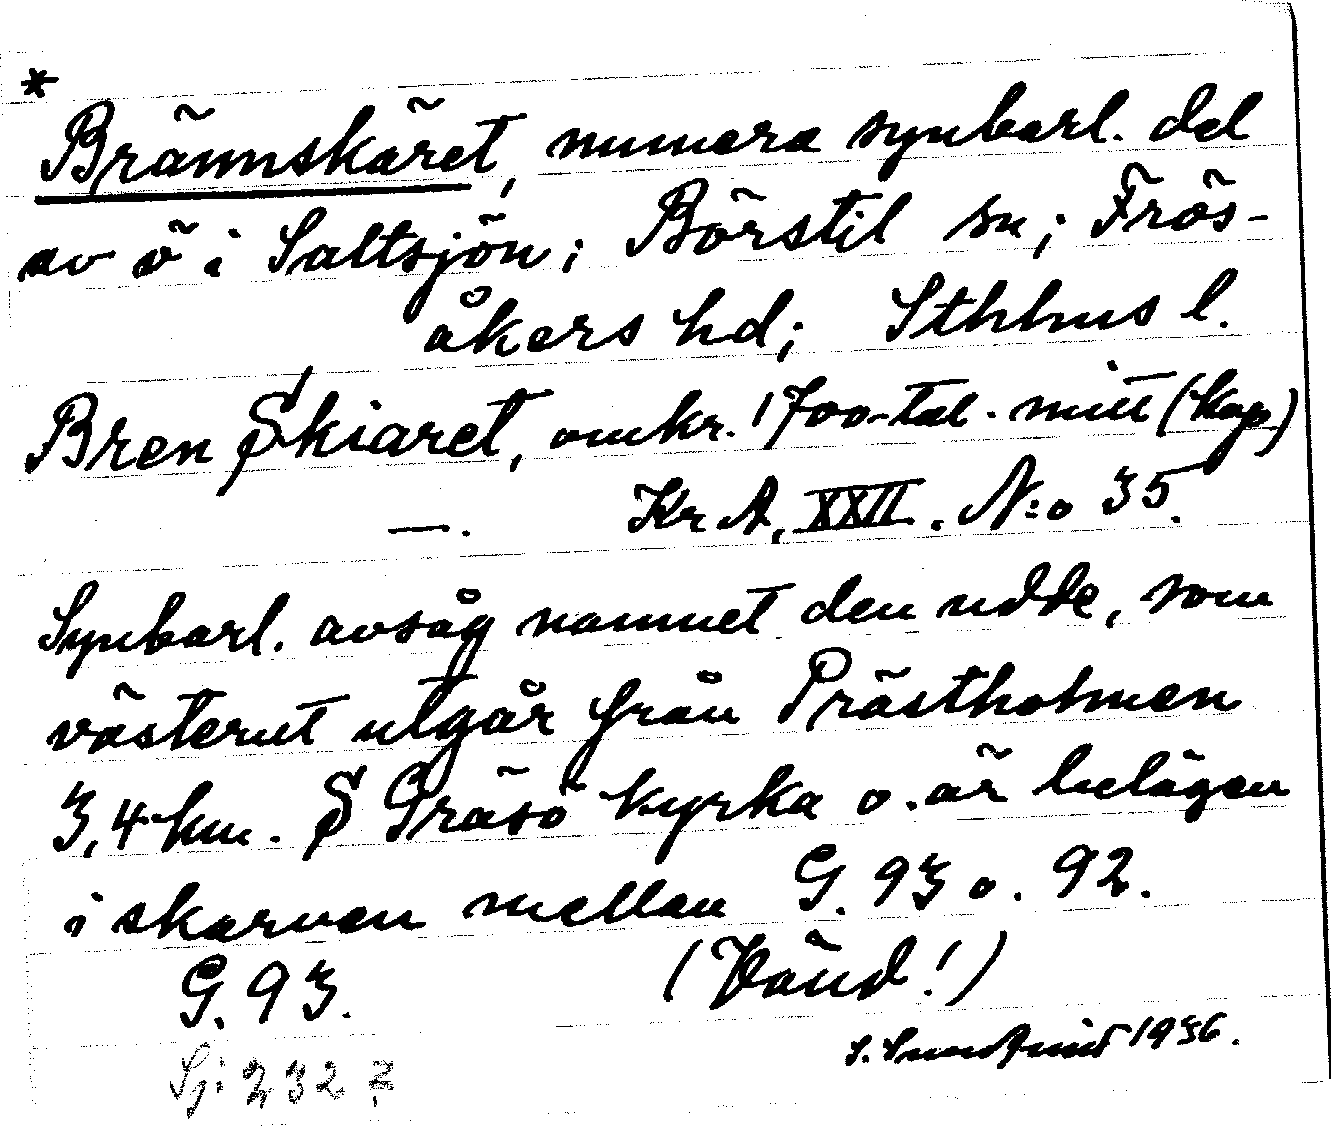 *
Brännskäret, numera synbarl. del
av ö i Saltsjön; Börstil sn; Frös-
åkers hd; Sthlms l.
Bren Skiaret, omkr. 1700-tal. mitt (Kop)
—. Kr A, XXII. N:o 35.
Synbarl. avsåg namnet den udde, som
västerut utgår från Prästholmen
3,4 km. S Gräsö kyrka o. är belägen
i skarven mellan G. 93 o. 92.
G. 93. (Vänd!)
S. 1936.
Sj: 232